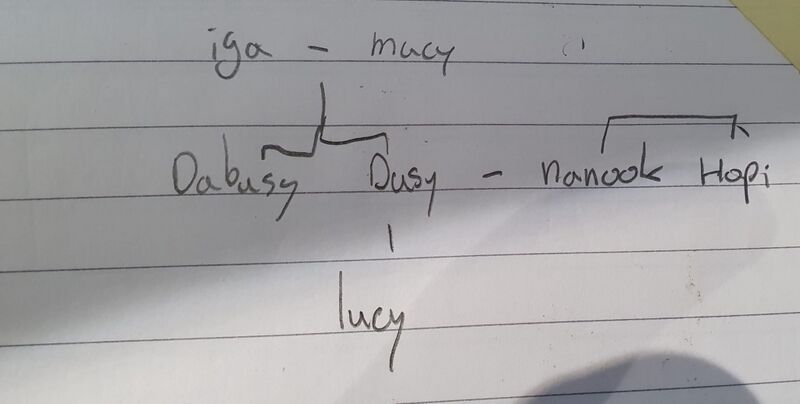 iga - macy
Dabusy Dusy - nanook Hopi
lucy